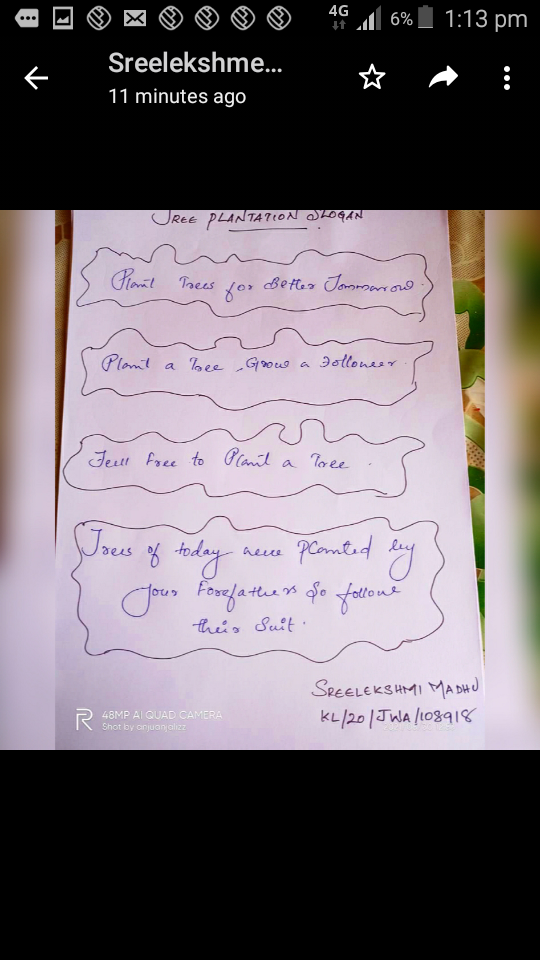 4G 6% 1:13 pm
Sreelekshme...
11 minutes ago
TREE PLANTATION SLOGAN
Plant Trees for Better Tommarow.
Plant a Tree, Grow a Followeer.
Feell free to Plant a Tree.
Trees of today were planted by
your Forefathers So follow
their Suit.
SREELEKSHMI MADHU
KL/20/JWA/108918
48MP AI QUAD CAMERA
Shot by anjuanjalizz